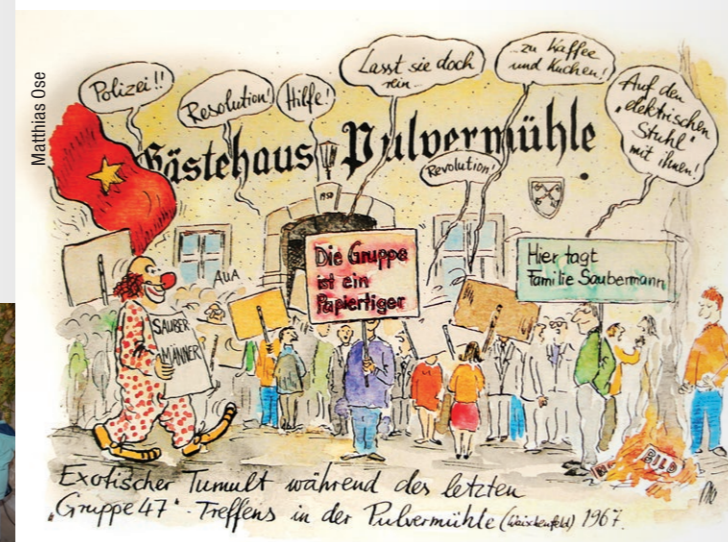 Matthias Ose
Polizei!!
Resolution!
Hilfe!
Lasst sie doch
rein...
...zu Kaffee
und Kuchen!
Auf den
"elektrischen
Stuhl"
mit ihnen!
Revolution!
Gästehaus Pulvermühle
AUA
SAUBER
MÄNNER
Die Gruppe
ist ein
Papiertiger
Hier tagt
Familie Saubermann
BILD
Exotischer Tumult während des letzten
"Gruppe 47"-Treffens in der Pulvermühle (Waischenfeld) 1967.